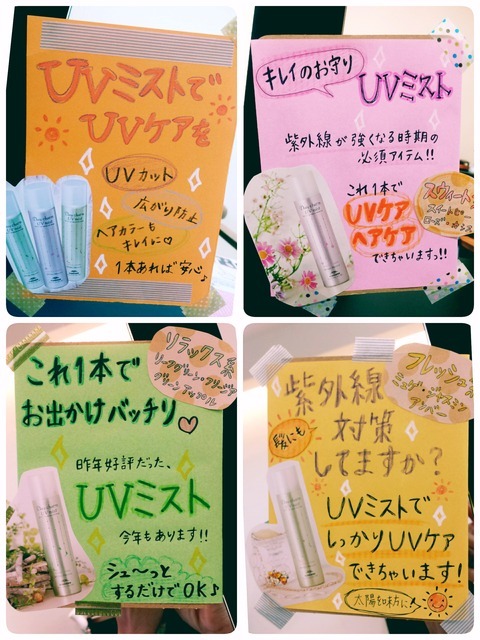 UVミストで
UVケアを
UVカット
広がり防止
ヘアカラーも
キレイに♡
1本あれば安心♪
キレイのお守り
UVミスト
紫外線が強くなる時期の
必須アイテム!!
これ1本で
UVケア
ヘアケア
できちゃいますっ!!
スウィート
これ1本で
お出かけバッチリ♡
リラックス系
リーフグリーン・フリージア
グリーンアップル
昨年好評だった、
UVミスト
今年もあります!!
シュ〜っと
するだけでOK♪
フレッシュ
紫外線
対策
してますか?
髪にも
UVミストで
しっかりUVケア
できちゃいます!
太陽を味方に♪